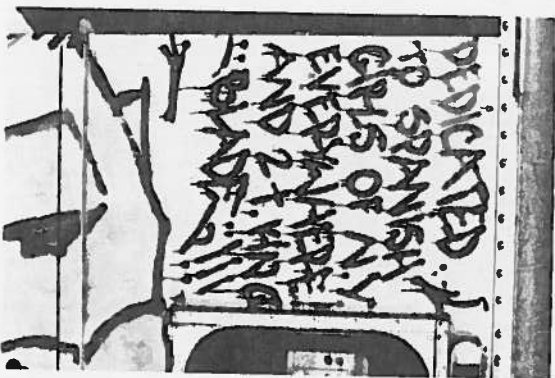 DEDICATED
TO SPANISH
GIRLS OF N Y
EVERYWHERE
AND 2 +
BLADE